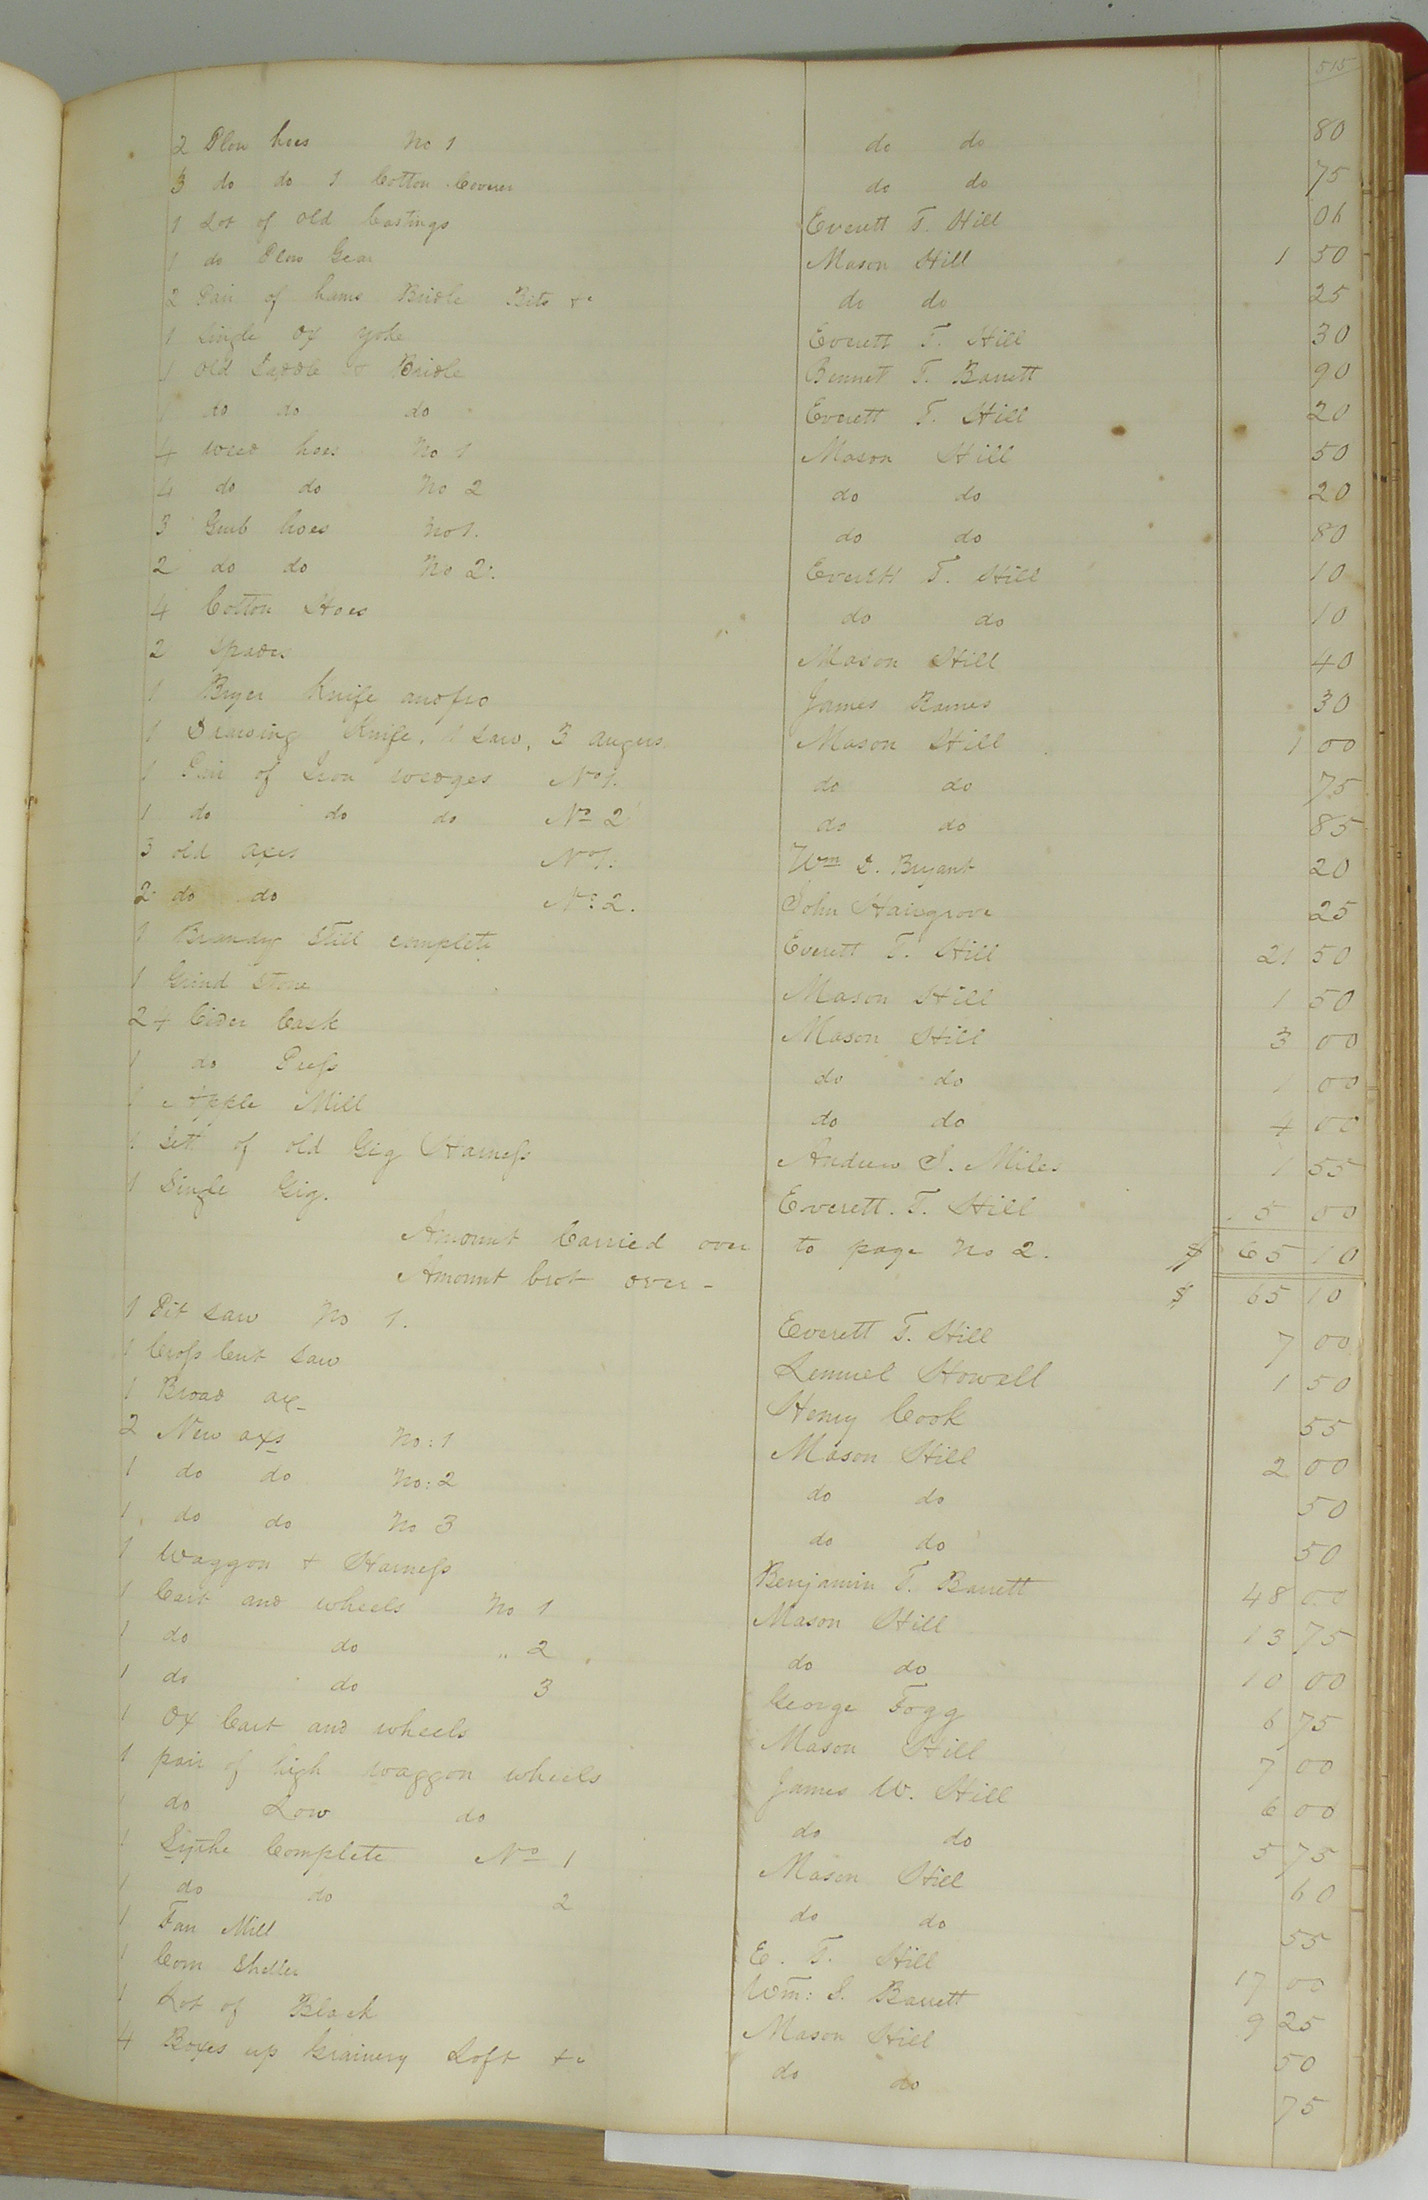 515
2 Plow hoes No 1 do do 80
3 do do 1 Cotton Coverer do do 75
1 Lot of old Castings Everett T. Hill 06
1 do Plow Gear Mason Hill 1 50
2 Pair of hams Bridle Bits &c do do 25
1 Single ox yoke Everett T. Hill 30
1 Old Saddle & Bridle Bennet T. Barrett 90
1 do do do Everett T. Hill 20
4 weed hoes No 1 Mason Hill 50
4 do do No 2 do do 20
3 Grub hoes No 1. do do 80
2 do do No 2. Everett T. Hill 10
4 Cotton Hoes do do 10
2 Spades Mason Hill 40
1 Bryer Knife and fro James Barnes 30
1 Drawing Knife. 1 Saw, 3 augers Mason Hill 1 00
1 Pair of Iron wedges No 1. do do 75
1 do do do No 2 do do 85
3 old axes No 1. Wm D. Bryant 20
2 do do No 2. John Hairgrove 25
1 Brandy Still complete Everett T. Hill 21 50
1 Grind Stone Mason Hill 1 50
24 Cider Cask Mason Hill 3 00
1 do Press do do 1 00
1 Apple Mill do do 4 00
1 Set of old Gig Harness Andrew S. Miles 1 55
1 Single Gig. Everett. T. Hill 5 00
Amount Carried over to page No 2. $ 65 10
Amount brot over - $ 65 10
1 Pit saw No 1. Everett T. Hill 7 00
1 Cross Cut Saw Lemuel Howell 1 50
1 Broad ax Henry Cook 55
2 New axs No: 1 Mason Hill 2 00
1 do do No: 2 do do 50
1 do do No 3 do do 50
1 Waggon & Harness Benjamin T. Barrett 48 00
1 Cart and wheels No 1 Mason Hill 13 75
1 do do " 2 do do 10 00
1 do do 3 George Fogg 6 75
1 Ox Cart and wheels Mason Hill 7 00
1 pair of high waggon wheels James W. Hill 6 00
1 do Low do do do 5 75
1 Sythe Complete No 1 Mason Hill 60
1 do do 2 do do 55
1 Fan Mill E. T. Hill 17 00
1 Corn Sheller Wm: S. Barrett 9 25
1 Lot of Black Mason Hill 50
4 Boxes up Grainery Loft &c do do 75